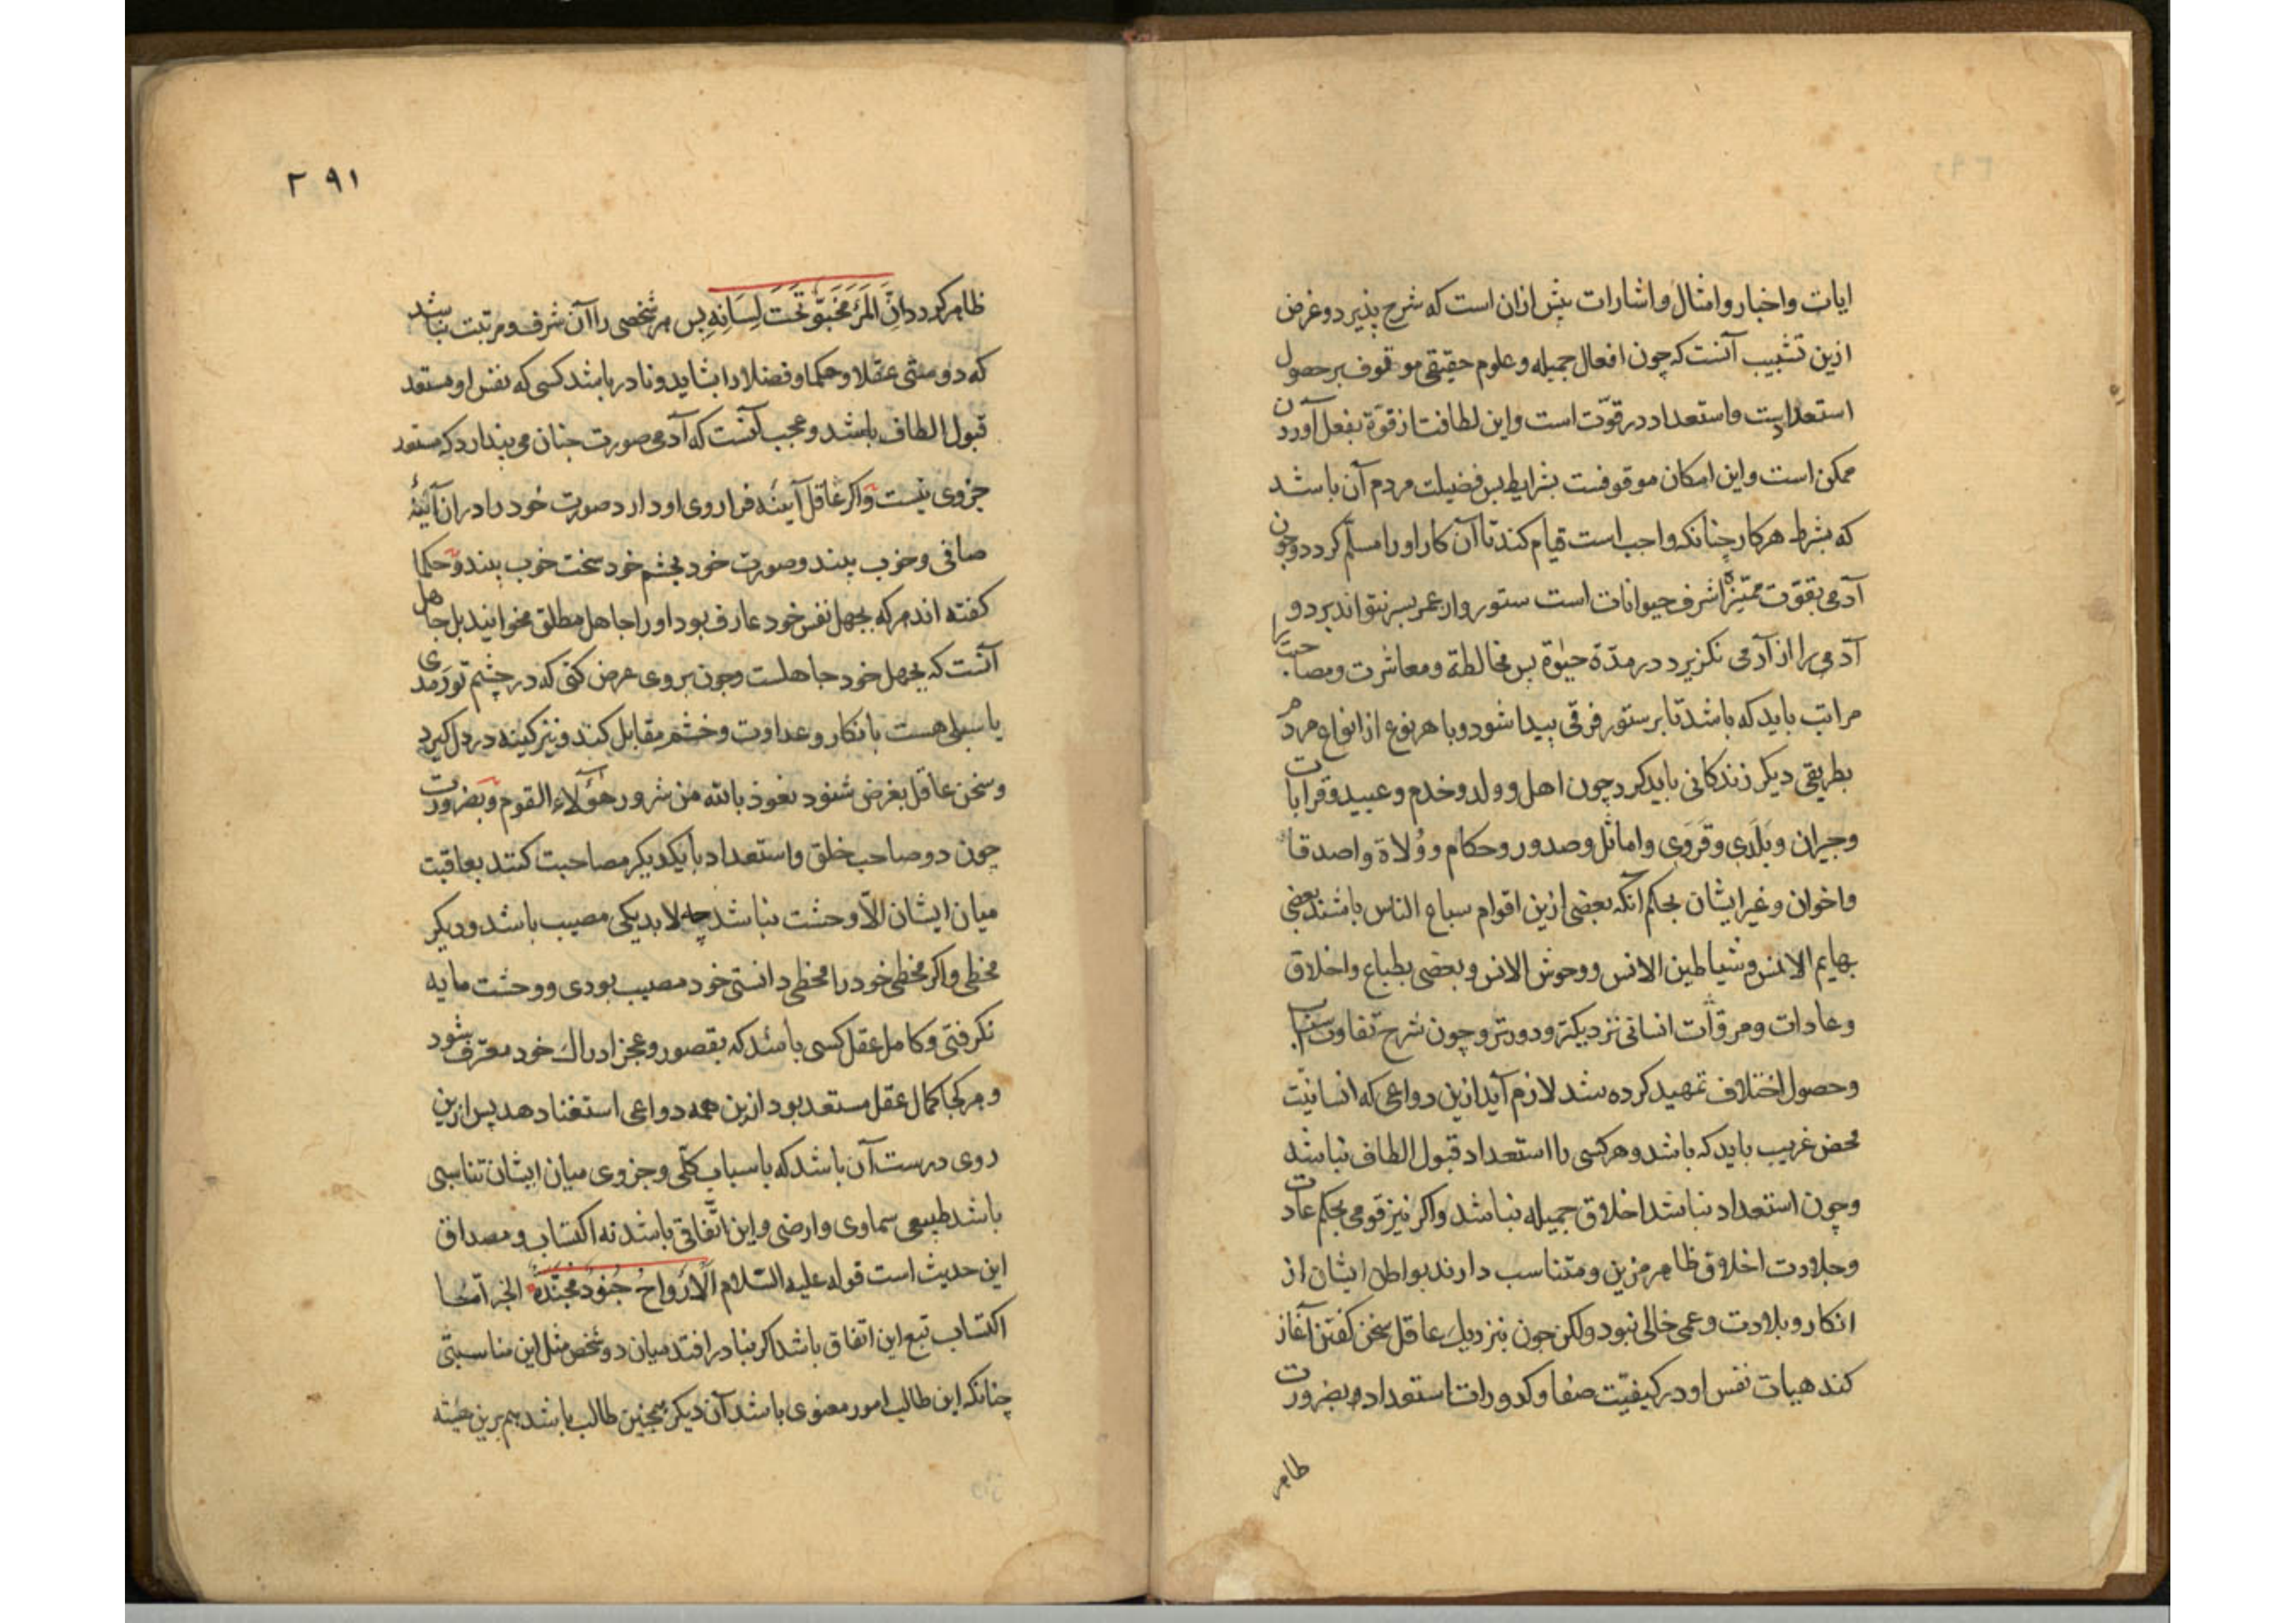 ایات واخبار وامثال واشارات بیش ازان است که شرح پذیرد وغرض
ازین تشبیب آنست که چون افعال جمیله وعلوم حقیقی موقوف بر حصول
استعدادیست واستعداد در قوّت است واین لطافت از قوّة بفعل آوردن
ممکن است واین امکان موقوفست بشرایط بس فضیلت مردم آن باشد
که بشرط هرکار چنانکه واجب است قیام کند تا آن کار اورا مسلّم کردد وجون
آدمی بقوّت ممیّزه اشرف حیوانات است ستور وار عمر بسر نتواند برد و
آدمی را از آدمی نکزیرد در مدّة حیٰوة بس مخالطة ومعاشرت ومصاحبت را
مراتب باید که باشد تا بر ستور فرقی پیدا شود وبا هر نوع از انواع مردم
بطریقی دیکر زندکانی باید کرد چون اهل وولد وخدم وعبید وقرابات
وجیران وبَلَدی وقَرَوی واماثل وصدور وحکام ووُلاة واصدقاء
واخوان وغیر ایشان بحکم آنکه بعضی ازین اقوام سباع الناس باشند وبعضی
بهایم الانس وشیاطین الانس ووحوش الانس وبعضی بطباع واخلاق
وعادات ومروّآت انسانی نزدیکتر ودورتر وچون شرح تفاوت
وحصول اختلاف تمهید کرده شد لازم آید ازین دواعی که انسانیّت
محض غریب باید که باشد وهرکسی را استعداد قبول الطاف نباشد
وچون استعداد نباشد اخلاق جمیله نباشد واکر نیز قومی بحکم عادت
وجلادت اخلاق ظاهر مزین ومتناسب دارند بواطن ایشان از
انکار وبلادت وعمی خالی نبود ولکن جون بنزدیك عاقل سخن کفتن آغاز
کند هیات نفس او در کیفیّت صفا وکدورات استعداد وبضرورت
ظاهر
۲۹۱
ظاهر کردد انّ المَرَءَ مَخبُوّ تَحتَ لِسَانِهِ بس هر شخصی را آن شرف ومرتبت نباشد
که دوستی عقلا وحکما وفضلا را بشاید ونادر باشد کسی که نفس او مستعد
قبول الطاف باشد وعجب آنست که آدمی صورت چنان می پندارد که ستور
جزوی نیست واکر عاقل آینه فرا روی او دارد صورت خود را دران آینهٔ
صافی وخوب بیند وصورت خود بچشم خود سخت خوب بیند وحکما
کفته اند هر که بجهل نفس خود عارف بود اورا جاهل مطلق مخوانید بل جاهل
آنست که بجهل خود جاهلست وجون بروی عرض کنی که در چشم تو رَمَدی
یا سبلی هست بانکار وعداوت وخشم مقابل کند ونیز کینه در دل کیرد
وسخن عاقل بغرض شنود نعوذ بالله من شرور هؤلاء القوم وبضرورت
چون دو صاحب خلق واستعداد با یکدیکر مصاحبت کنند بعاقبت
میان ایشان الّا وحشت نباشد چه لابد یکی مصیب باشد ودیکر
مخطی واکر مخطی خود را مخطی دانستی خود مصیب بودی ووحشت مایه
نکرفتی وکامل عقل کسی باشد که بقصور وعجز ادراك خود معترف شود
وهرکجا کمال عقل مستعد بود ازین همه دواعی استغنا دهد پس ازین
روی درست آن باشد که باسباب کلّی وجزوی میان ایشان تناسبی
باشد طبیعی سماوی وارضی واین اتّفاقی باشد نه اکتساب ومصداق
این حدیث است قوله علیه السّلام الَارَواحُ جُنوُدٌ مُجَنَّدَة الخبر امّا
اکتساب تبع این اتفاق باشد اکر بنادر افتد میان دو شخص مثل این مناسبتی
چنانکه این طالب امور معنوی باشد آن دیکر همچنین طالب باشد هم برین